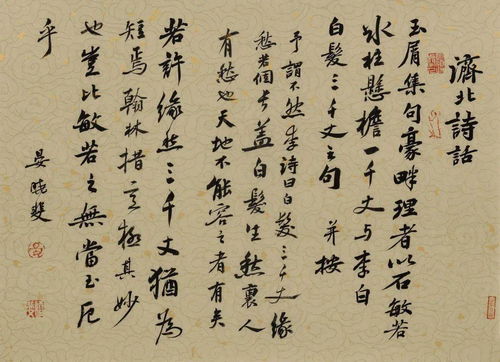 濟北詩話
玉屑集句豪畔理者以石敏若
冰柱懸檐一千丈与李白
白髮三千丈之句 并按
予謂不然李詩曰白髮三千丈緣
愁若個长盖白髮生愁裏人
有愁也天地不能容之者有矣
若許緣愁三千丈猶為
短焉翰林措意極其妙
也豈比敏若之無當玉卮
乎
晏晓斐